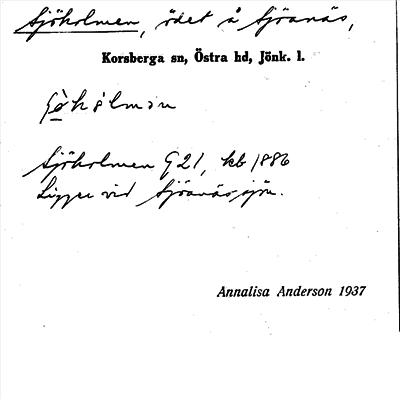 Sjöholmen, ödet å Sjöanäs,
Korsberga sn, Östra hd, Jönk. l.
Sjöholmen G21, kb 1886
Ligger vid Sjöanäsjön.
Annalisa Anderson 1937